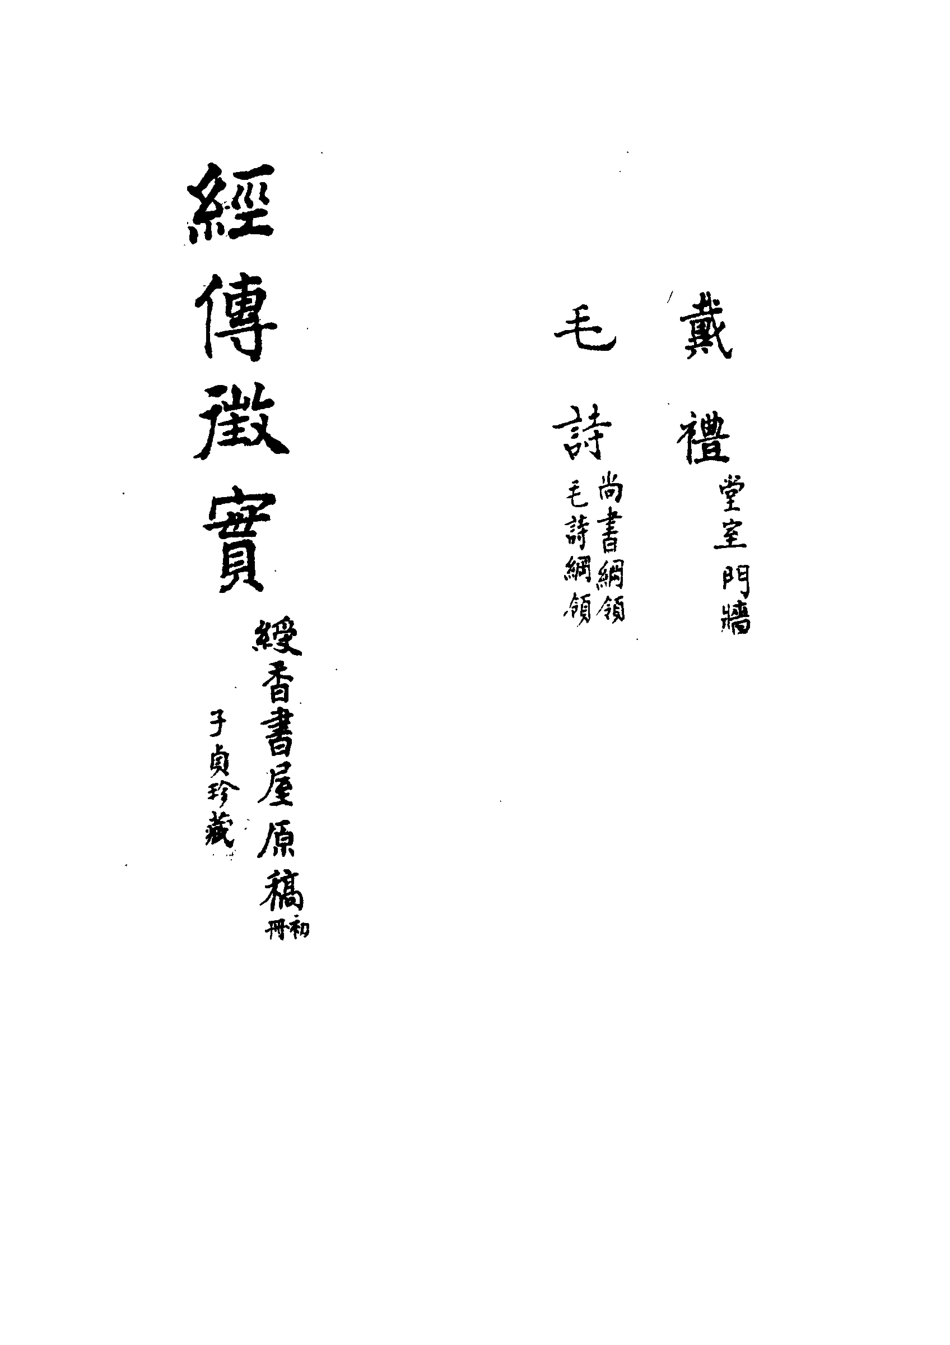 戴禮
堂室門牆
毛詩
尚書綱領
毛詩綱領
經傳徵實
綬香書屋原稿
初
冊
子貞珍藏